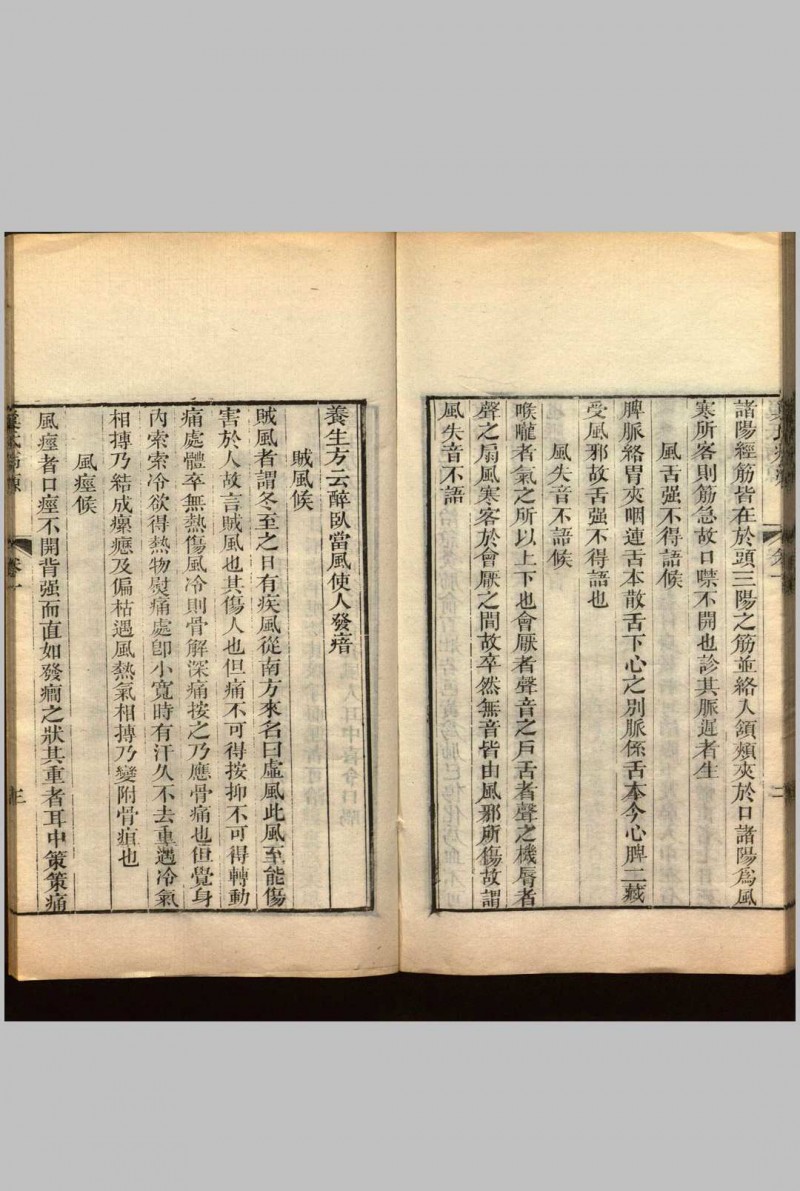 諸陽經筋皆在於頭三陽之筋並絡人頷頰夾於口諸陽爲風
寒所客則筋急故口噤不開也診其脈遲者生
風舌强不得語候
脾脈絡胃夾咽連舌本散舌下心之别脈係舌本今心脾二藏
受風邪故舌强不得語也
風失音不語候
喉嚨者氣之所以上下也會厭者聲音之戶舌者聲之機脣者
聲之扇風寒客於會厭之間故卒然無音皆由風邪所傷故謂
風失音不語
二
養生方云醉臥當風使人發瘖
賊風候
賊風者謂冬至之日有疾風從南方來名曰虛風此風至能傷
害於人故言賊風也其傷人也但痛不可得按抑不可得轉動
痛處體卒無熱傷風冷則骨解深痛按之乃應骨痛也但覺身
內索索冷欲得熱物熨痛處卽小寬時有汗久不去重遇冷氣
相摶乃結成瘰癧及偏枯遇風熱氣相摶乃變附骨疽也
風痙候
風痙者口痙不開背强而直如發癎之狀其重者耳中策策痛
巢氏病源
卷一
三